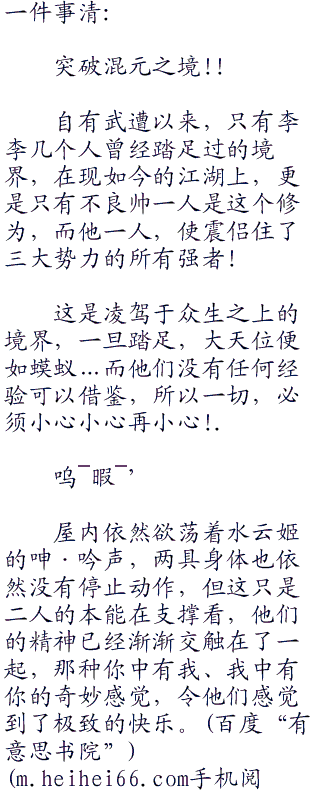 一件事清:
突破混元之境!!
自有武遭以来，只有李
李几个人曾经踏足过的境
界，在现如今的江湖上，更
是只有不良帅一人是这个修
为，而他一人，使震侣住了
三大势力的所有强者!
这是凌驾于众生之上的
境界，一旦踏足，大天位便
如蟆蚁...而他们没有任何经
验可以借鉴，所以一切，必
须小心小心再小心!.
呜¯暇¯’
屋内依然欲荡着水云姬
的呻·吟声，两具身体也依
然没有停止动作，但这只是
二人的本能在支撑看，他们
的精神已经渐渐交触在了一
起，那种你中有我、我中有
你的奇妙感觉，令他们感觉
到了极致的快乐。(百度“有
意思书院”)
(m.heihei66.com手机阅